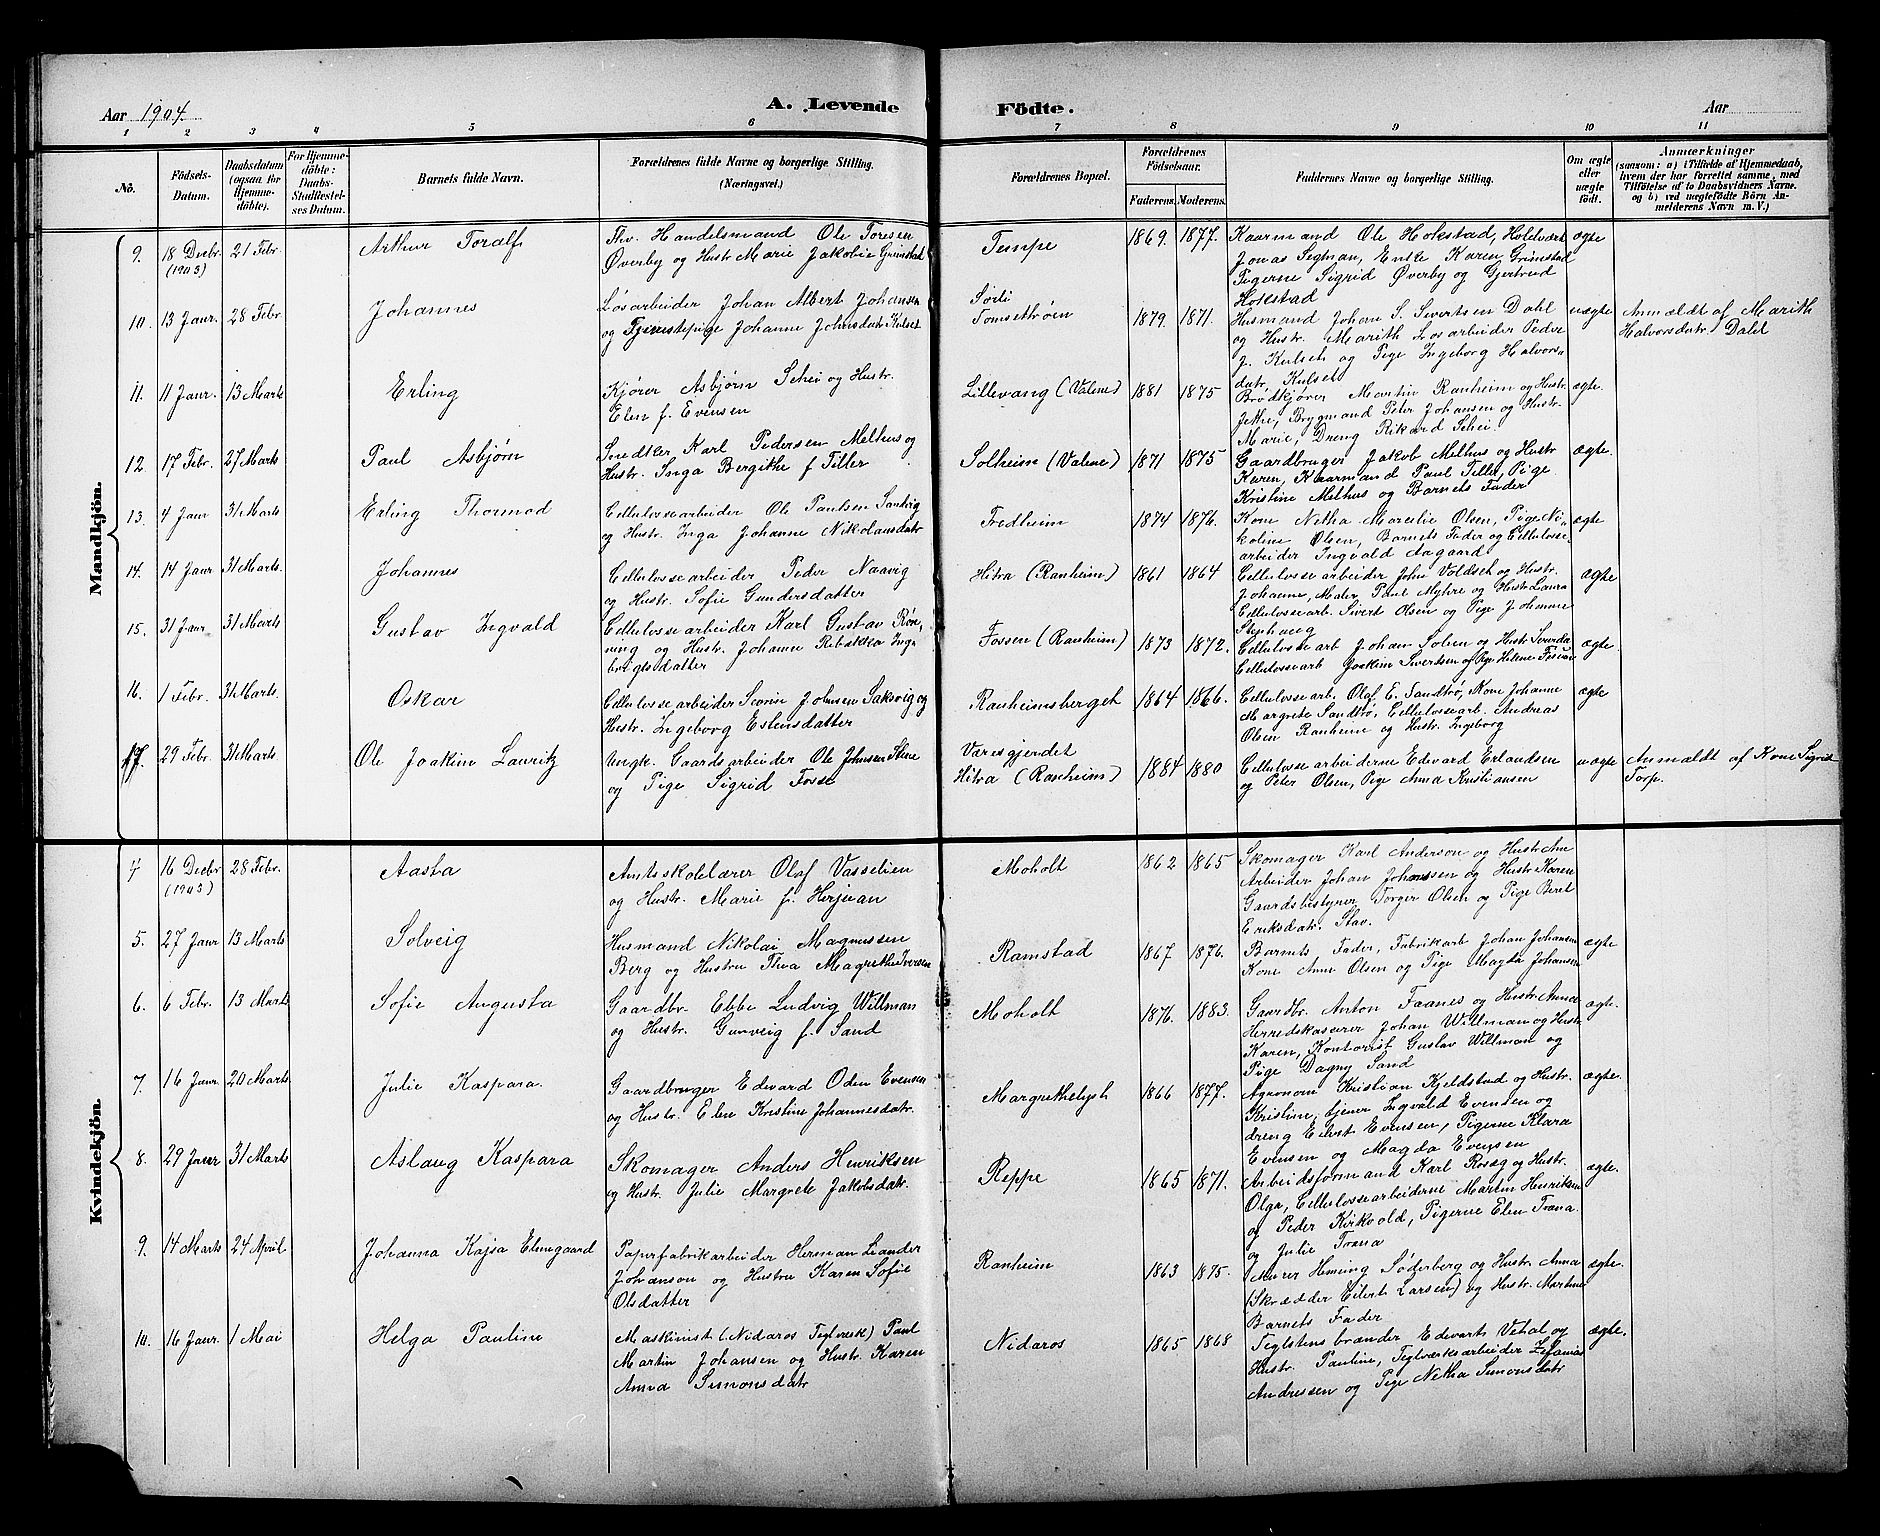 Aar 1904.
A. Levende Födte.
Aar
1 2 3 4 5 6 7 8 9 10 11
No.
Födsels-Datum.
Daabsdatum (ogsaa for Hjemme-döbte).
For Hjemme-döbte: Daabs-Stadfæstel-ses Datum.
Barnets fulde Navn.
Forældrenes fulde Navne og borgerlige Stilling. (Næringsvei.)
Forældrenes Bopæl.
Forældrenes Födselsaar.
Faderens. Moderens.
Faddernes Navne og borgerlige Stilling.
Om ægte eller uægte födt.
Anmærkninger
(saasom: a) i Tilfælde af Hjemmedaab,
hvem der har forrettet samme, med
Tilföielse af to Daabsvidners Navne.
og b) ved uægtefödte Börn An-
melderens Navn m. V.)
Mandkjön.
9. 18 Decbr. (1903) 21 Febr. Arthur Toralf
Thv. Handelsmand Ole Toresen
Øverby og Hustr. Marie Jakobie Grimstad
Tempe 1869. 1877.
Kaarmand Ole Hokstad, Holdvært
Jonas Segman, Enke Karen Grimstad
Pigerne Sigrid Øverby og Gjertrud
Hokstad
ægte
10. 13 Jaur. 28 Febr. Johannes
Løsarbeider Johan Albert Johansen
og Tjenestepige Johanne Johnsdatr. Kulset
Sørli
Tomsetrøen 1879. 1871.
Husmand Johan S. Sivertsen Dahl
og Hustr. Marith Løsarbeider Peder
J. Kulseth og Pige Ingeborg Halvors-
datr. Kulset
uægte
Anmældt af Marith
Halvorsdatr. Dahl
11. 11 Jaur. 13 Marts Erling
Kjører Asbjørn Schei og Hustr.
Elen f. Evensen
Lillevang (Valene) 1881 1875
Brødkjører Martin Ranheim og Hustr.
Jethe, Brygmand Peter Johansen og Hustr.
Marie, Dreng Rikard Schei.
ægte.
12. 17 Febr. 27 Marts Paul Asbjørn
Snedker Karl Pedersen Melhus og
Hustr. Inga Bergithe f Tiller
Solheim (Valene) 1871 1875
Gaardbruger Jakob Melhus og Hustr
Karen, Kaarmand Paul Tiller, Pige
Kristine Melhus og Barnets Fader
ægte.
13. 4 Jaur 31 Marts Erling Thormod
Cellulosearbeider Ole Paulsen Sandvig
og Hustr. Inga Johanne Nikolausdatr
Fredheim 1874 1876.
Kone Netha Marelie Olsen, Pige Ni-
koline Olsen, Barnets Fader og Cellulose-
arbeider Ingvald Aagaard
ægte
14. 14 Jaur 31 Marts. Johannes
Cellulosearbeider Peder Naavig
og Hustr. Sofie Gundersdatter
Hitra (Ranheim) 1861 1864
Cellulosearbeider John Voldseth og Hustr.
Johanne, Maler Paul Myhre og Hustr Laura
Cellulosearb. Sivert Olsen og Pige Johanne
Stephaug
ægte
15. 31 Jaur 31 Marts Gustav Ingvald
Cellulosearbeider Karl Gustav Røn-
ning og Hustr. Johanne Rebekka Inge
brigtsdatter
Fossen (Ranheim) 1873 1872.
Cellulosearb Johan Solien og Hustr Svurda
Cellulosearb Joakim Sivertsen og Pige Helene
ægte.
16. 1 Febr. 31 Marts. Oskar
Cellulosearbeider Sevrin Johnsen Saksvig og
Hustr. Ingeborg Estensdatter
Ranheimsberget 1864 1866.
Cellulosearb. Olaf E. Sandtrø, Kone Johanne
Margrete Sandtrø, Cellulosearb. Andreas
Olsen Ranheim og Hustr. Ingeborg
ægte
17. 29 Febr. 31 Marts Ole Joakim Lauritz
Ungk. Gaardsarbeider Ole Johnsen Stene
og Pige Sigrid Fosse
Væresgjerdet
Hitra (Ranheim) 1884 1880
Cellulosearbeiderne Edvard Erlandsen
og Peter Olsen, Pige Anna Kristiansen
uægte
Anmældt af Kone Sigrid
Torp.
Kvindekjön.
4 16 Decbr (1903) 28 Febr. Aasta
Amtsskolelærer Olaf Vasselien
og Hustr. Marie f. Hirjuan
Moholt 1862 1865
Skomager Karl Anderson og Hustr Ane
Arbeider Johan Johansen og Hustr Karen
Gaardsbestyrer Torger Olsen og Pige Beret
Eriksdatr. Stav.
5. 27 Jaur 13 Marts Solveig
Husmand Nikolai Magnussen
Berg og Hustru Thea Magrethe Iversen
Ramstad 1867 1876.
Barnets Fader, Fabrikarb Johan Johansen
Kone Anne Olsen og Pige Magda Johansen
ægte
6. 6 Febr. 13 Marts Sofie Augusta
Gaardbr. Ebbe Ludvig Willman
og Hustr. Gunveig f. Sand
Moholt 1876. 1883.
Gaardbr. Anton Faanes og Hustr. Anna
Herredskasserer Johan Willman og Hustr
Karen, Kontorist Gustav Willman og
Pige Dagny Sand
ægte.
7. 16 Jaur. 20 Marts. Julie Kaspara.
Gaardbruger Edvard Odin Evensen
og Hustr. Elen Kristine Johannesdatr.
Margrethelyst 1866 1877.
Agronom Kristian Kjeldstad og Hustr.
Kristine, tjener Ingvald Evensen og
dreng Eilert Evensen, Pigerne Klara
Evensen og Magda Evensen
ægte.
8. 29 Jaur 31 Marts Aslaug Kaspara
Skomager Anders Henriksen
og Hustr. Julie Margrete Jakobsdatr.
Reppe 1865 1871.
Arbeidsformand Karl Rosæg og Hustr.
Olga, Cellulosearbeiderne Martin Henriksen
og Peder Kirkvold, Pigerne Elen Trana
og Julie Trana
ægte.
9. 14 Marts 24 April Johanna Kajsa Elmgaard
Papirfabrikarbeider Herman Leander
Johanson og Hustru Karen Sofie
Olsdatter
Ranheim 1863 1875.
Murer Heming Søderberg og Hustr. Anna
(Skrædder Eilert Larsen) og Hustr. Martine
Barnets Fader
ægte.
10. 16 Jaur. 1 Mai Helga Pauline
Maskinist (Nidaros Teglverk) Paul
Martin Johansen og Hustr. Karen
Anna Simonsdatr
Nidaros 1865 1868
Teglstensbrænder Edvart Vehal og
Hustr. Pauline, Teglværksarbeider Zefanias
Andressen og Pige Netha Simonsdatr
ægte.